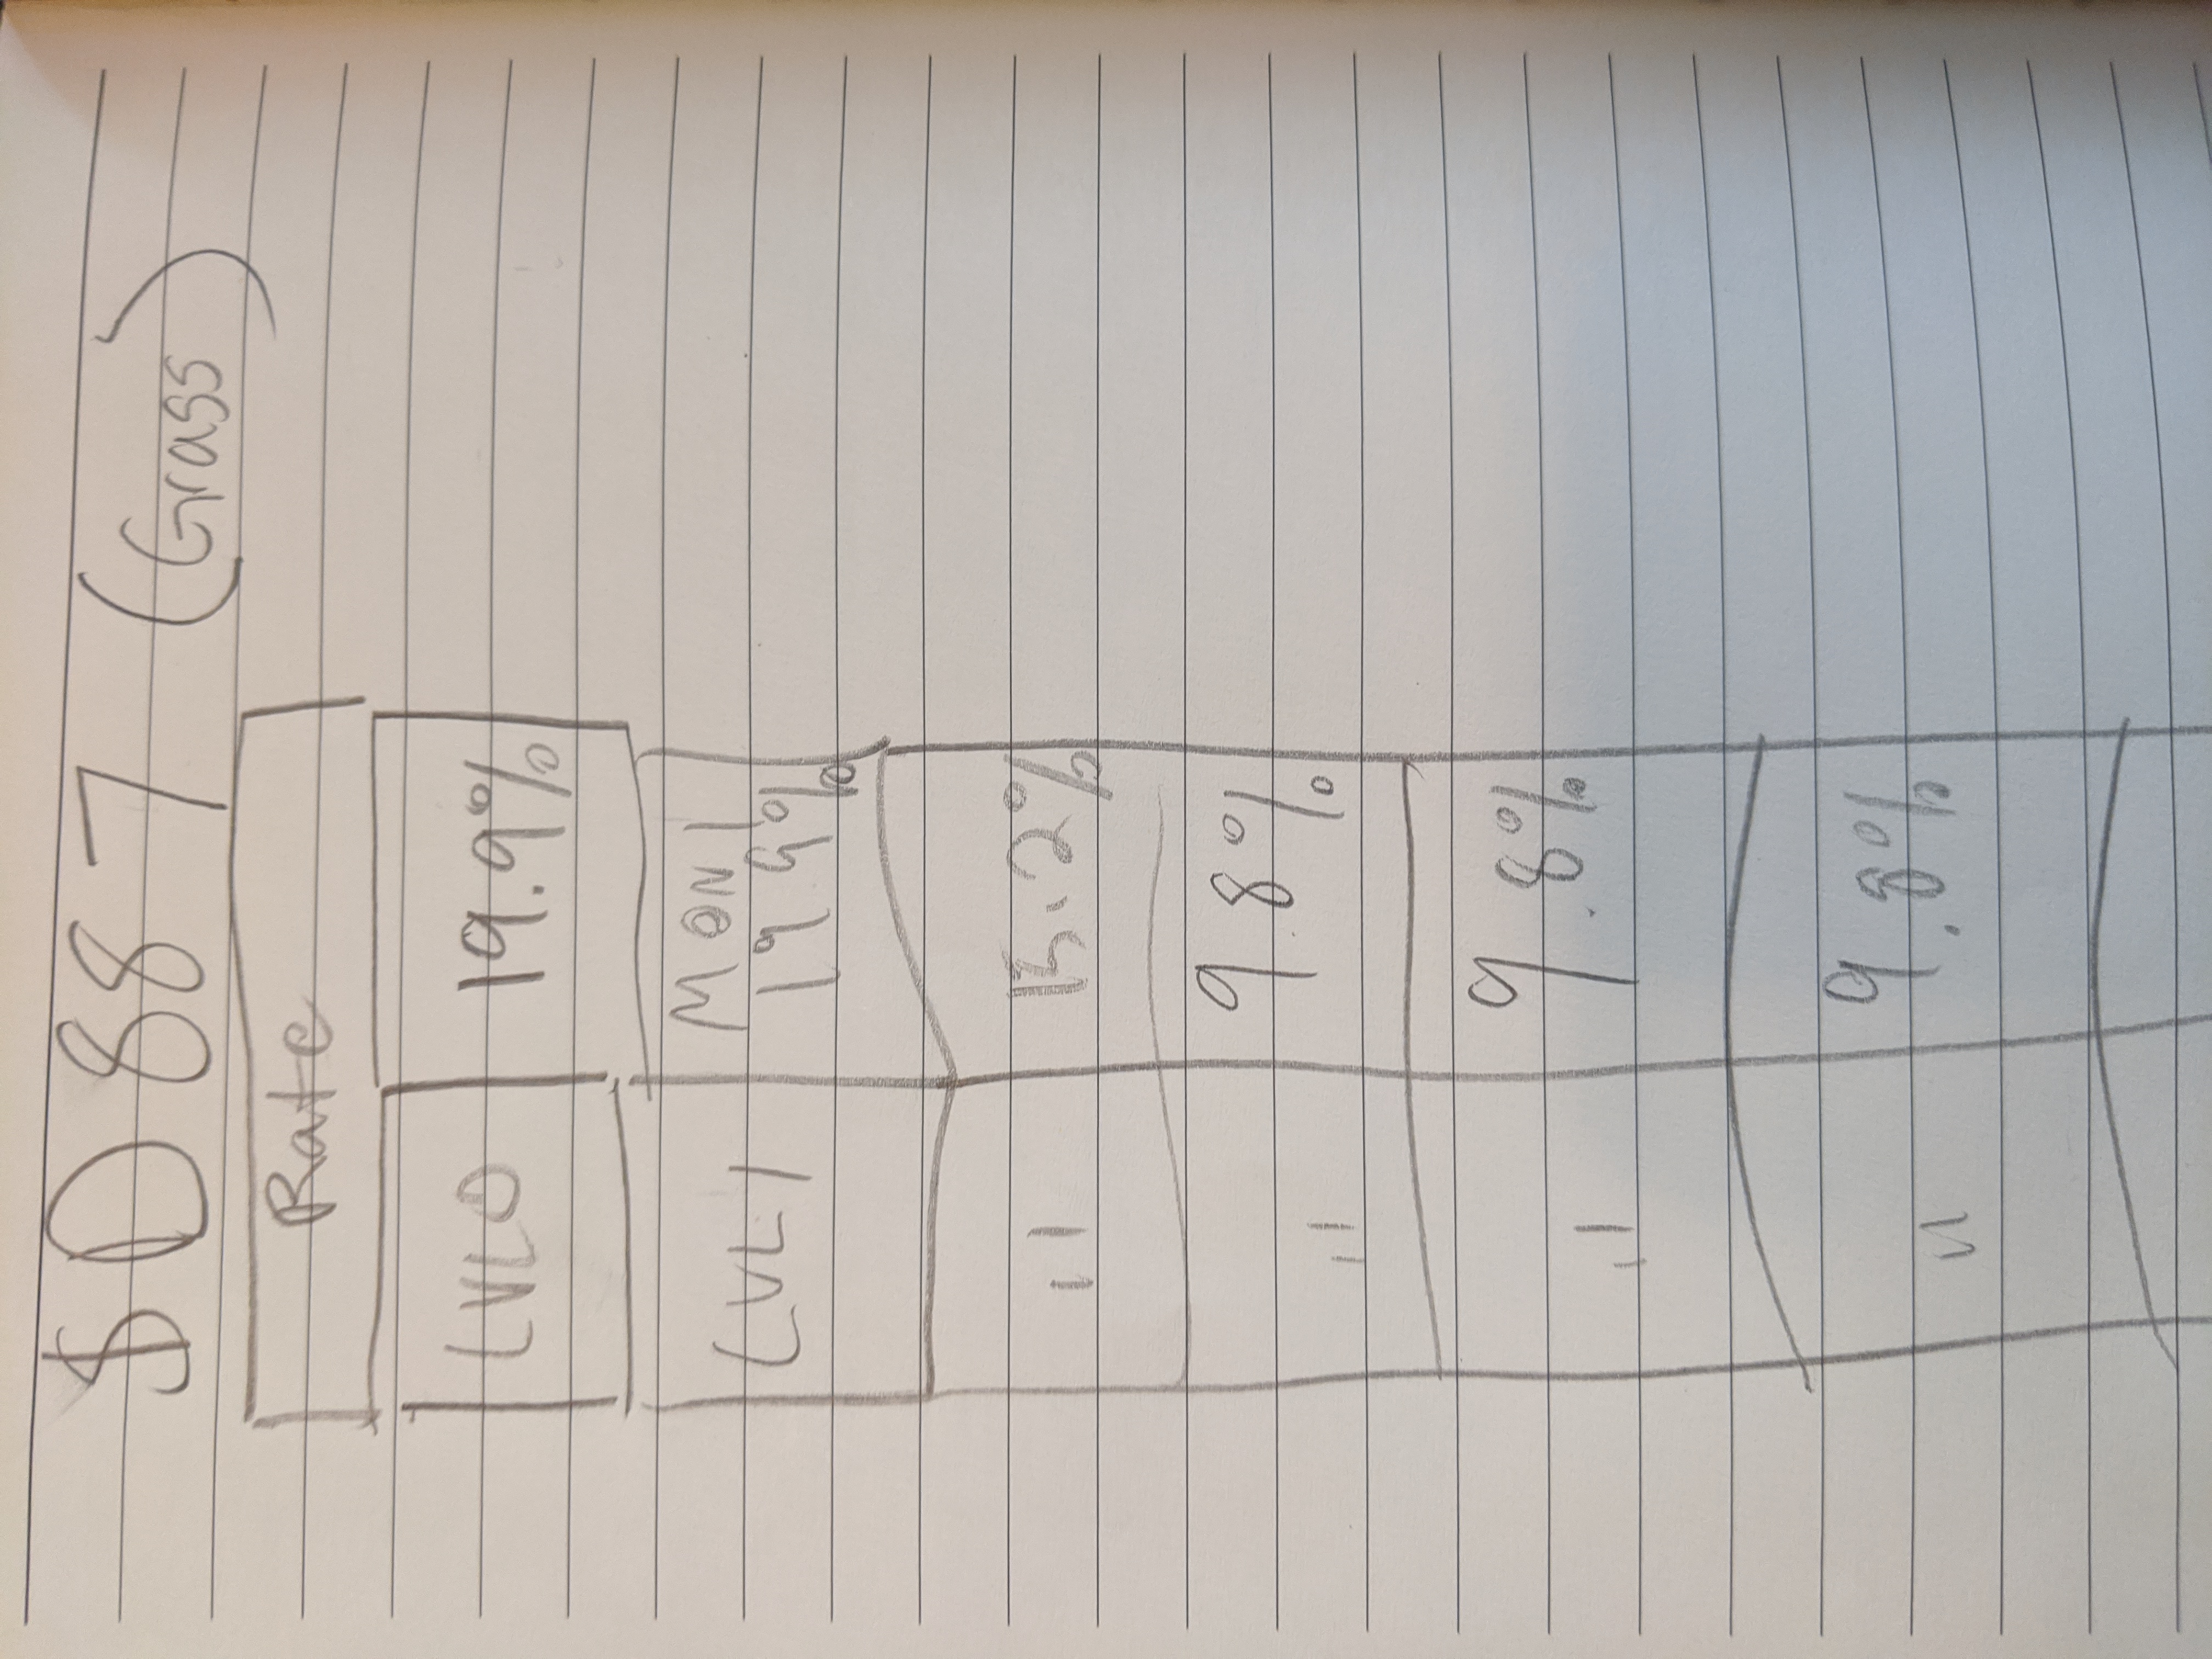 $D887 (Grass)
Rate
LVL0 19.9%
LVL1 MON1
19.9%
" 15.2%
" 9.8%
" 9.8%
" 9.8%